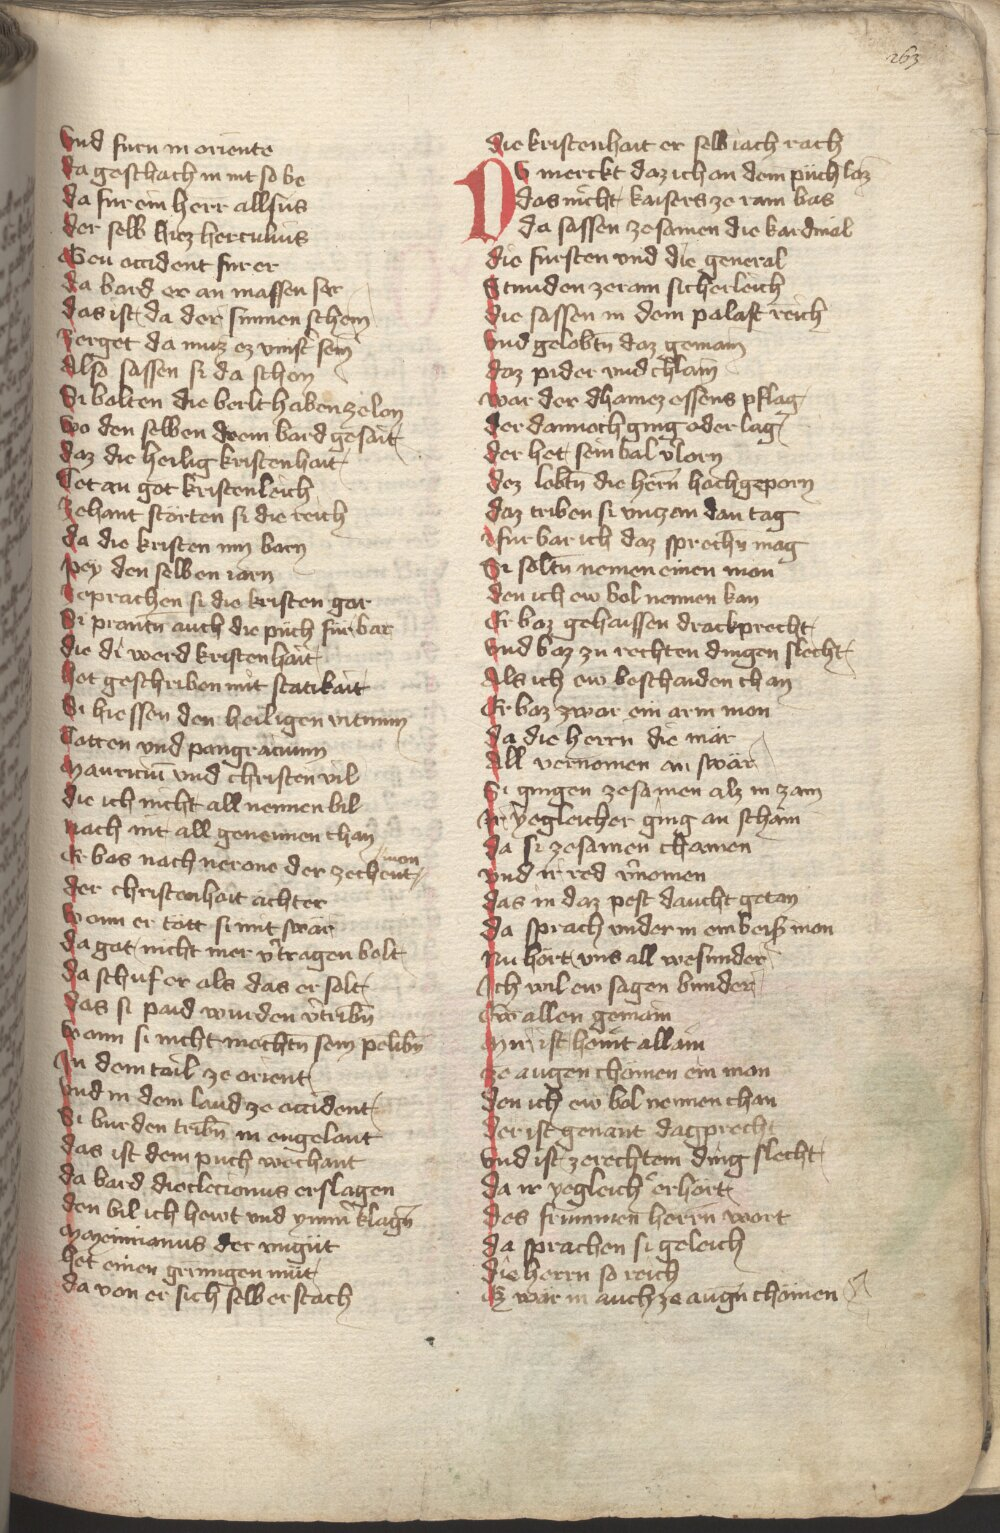 263
Vnd furn in oriente
da geschach in nit so be
da fur ein herr allsus
der selb hiez herculius
Gen occident fur er
da bard er an massen ser
das ist da der sunnen schein
verget da muz ez vinster sein
Also sassen si da schon
Si bolten die berlt haben ze lon
wo den selben drein bard gesait
daz die heilig kristenhait
Bet an got kristenleich
zehant storten si die reich
da die kristen inn barn
pey den selben iarn
zeprachen si die kristen gar
Si prantn auch die püch für bar
die di werd kristenhait
het geschriben mit statikait
Si hiessen den heiligen vitum
totten vnd pangracium
Mauricium vnd christen vil
die ich nicht all nennen bil
noch nit all genennen chan
Er bas nach nerone der zechent man
der christenhait ächter
wann er tott si mit swär
da got nicht mer v̄tragen bolt
da schuf er als das er solt
das si paid wurden v̄tribn̄
wann si nicht mochtn̄ sein pelibn̄
In dem tail ze orient
vnd in dem land ze occident
Si burden tribn̄ in engelant
das ist dem puch wechant
da bard dioclecionus erslagen
den bil ich hewt vnd ymm̄ klagn̄
Maximianus der vngüt
het einen grimigen müt
da von er sich selb erstach
die kristenhait er selb iach rach
DV merckt daz ich an dem püch laz
das nicht kaisers ze ram bas
da sassen zesamen die kardinal
die fursten vnd die general
Stunden ze ram sicherleich
die sassen in dem palast reich
vnd gelobtn̄ daz gemain
daz pider vnd chlain
war der dhainez essens pflag
der dannoch ging oder lag
der het sein bal v̄lorn
dez lobtn̄ die hern̄ hochgeporn
daz triben si vnz an dan tag
fur bar ich daz sprechn̄ mag
Si soltn̄ nemen einen man
den ich ew bol nennen kan
Er baz gehaissen drackprecht
vnd baz zu rechten dingen slecht
Als ich ew beschaiden chan
Er baz zwar ein arm man
da die herrn die mär
All vernomen an swär
Si gingen zesamen alz in zam
Ir yegleicher ging an scham
da si zesamen chomen
vnd ir red v̄nomen
das in daz pest daucht getan
da sprach vnder in ein beiß man
Nu hört vns all wesunder
Ich wil ew sagen bunder
Ew allen gemain
Mir ist heint allain
ze augen chomen ein man
den ich ew bol nennen chan
der ist genant dagprecht
vnd ist ze rechtem ding slecht
da ir yegleich er hört
des frummen herrn wort
da sprachen si geleich
die herrn so reich
Ez wär in auch ze augn̄ chömen